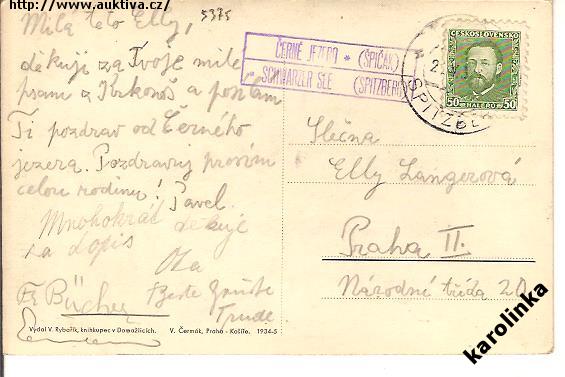 http://www.auktiva.cz/
Milá teto Elly,
5375
děkuji za Tvoje milé
psaní z Krkonoš a posílám
Ti pozdrav od Černého
jezera. Pozdravuj prosím
celou rodinu! Pavel.
Mnohokrát děkuje
za dopis
Ota
Fr. Bücher
Beste Grüsse
Trude
Vydal V. Rybařík, knihkupec v Domažlicích. V. Čermák, Praha - Košíře. 1934-5
ČERNÉ JEZERO * (ŠPIČÁK)
SCHWARZER SEE (SPITZBERG)
ČESKOSLOVENSKO
50 HALÉŘŮ 50
Slečna
Elly Langerová
Praha II.
Národní třída 20
karolinka